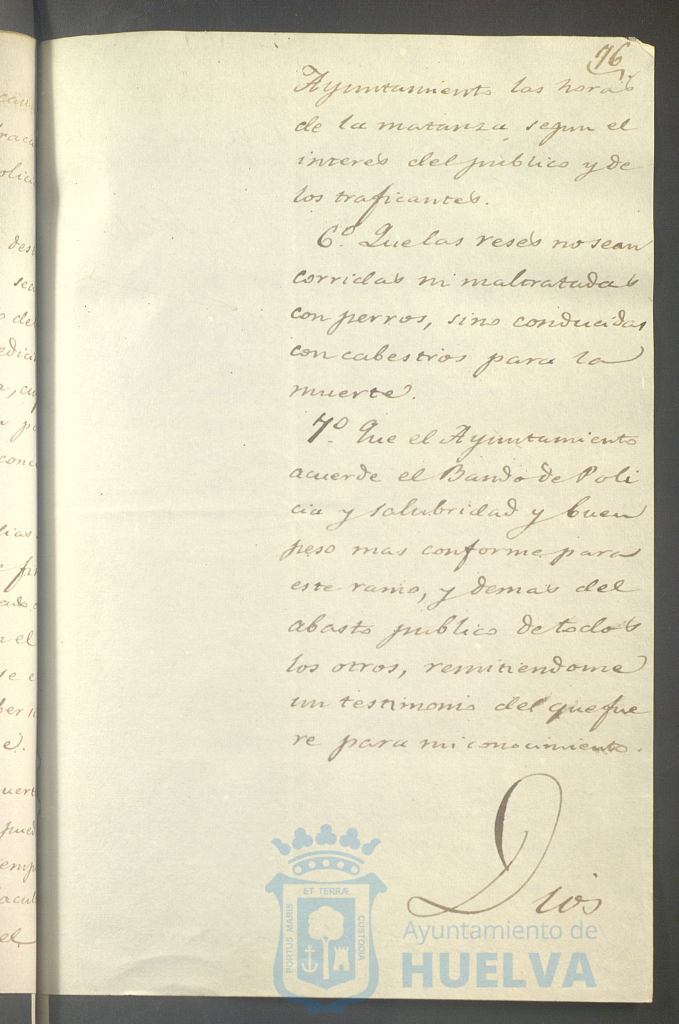 76
Ayuntamiento las horas
de la matanza segun el
interes del publico y de
los traficantes.
6.º Que las reses no sean
corridas ni maltratadas
con perros, sino conducidas
con cabestros para la
muerte.
7.º Que el Ayuntamiento
acuerde el Bando de Poli
cia y salubridad y buen
peso mas conforme para
este ramo, y demas del
abasto publico de todos
los otros, remitiendome
un testimonio del que fue
re para mi conocimiento.
Dios
PORTUS MARIS
ET TERRÆ
CUSTODIA
Ayuntamiento de
HUELVA